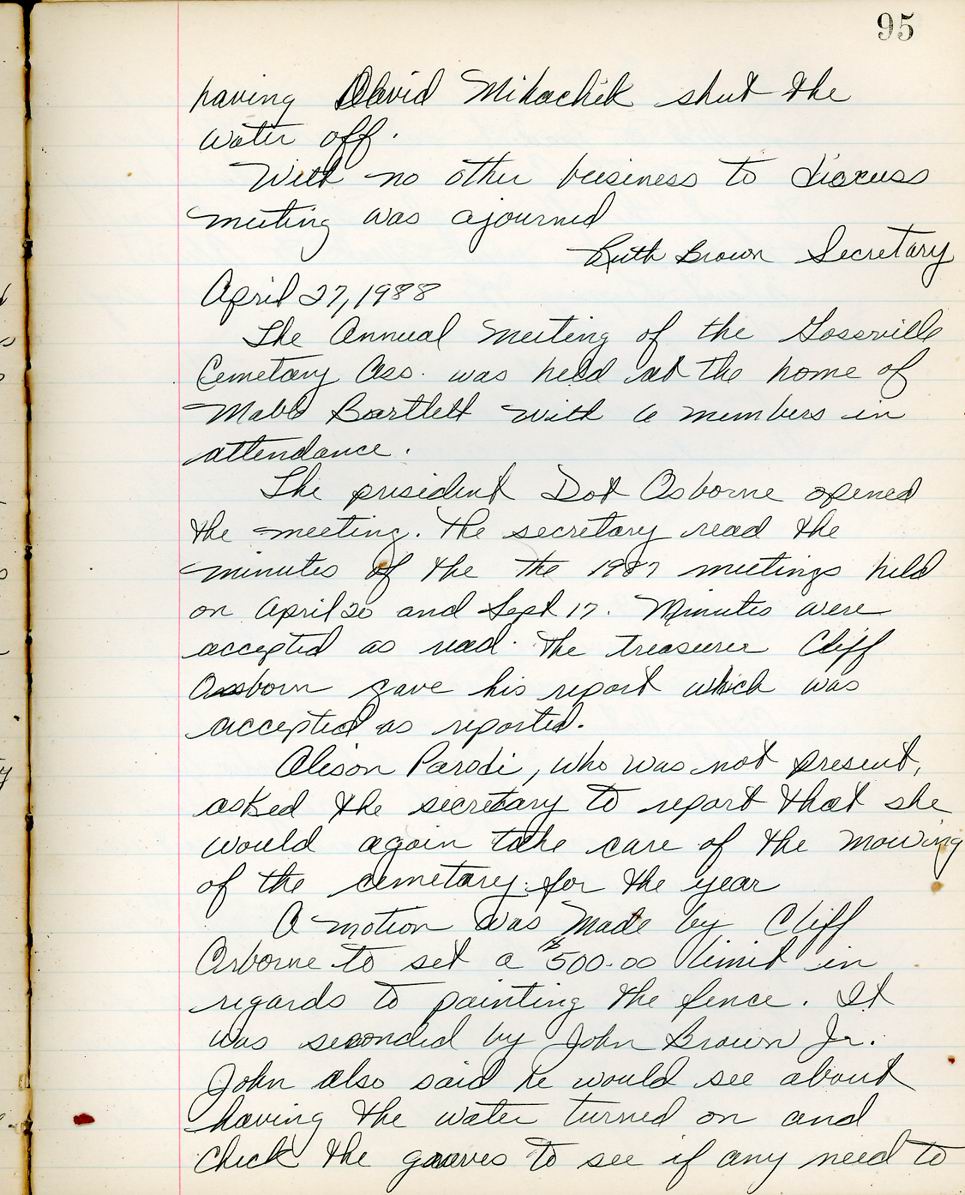 95
having David Mihachik shut the
water off.
With no other business to discuss
meeting was ajourned
Ruth Brown Secretary
April 27, 1988
The Annual Meeting of the Gossville
Cemetary Ass. was held at the home of
Mabl Bartlett with 6 members in
attendance.
The president Dot Osborne opened
the meeting. The secretary read the
minutes of the the 1987 meetings held
on April 20 and Sept 17. Minutes were
accepted as read. The treasurer Cliff
Ossborn gave his report which was
accepted as reported.
Alison Parodi, who was not present,
asked the secretary to report that she
would again take care of the mowing
of the cemetary for the year
A motion was made by Cliff
Osborne to set a $500.00 limit in
regards to painting the fence. It
was seconded by John Brown Jr.
John also said he would see about
having the water turned on and
check the graves to see if any need to